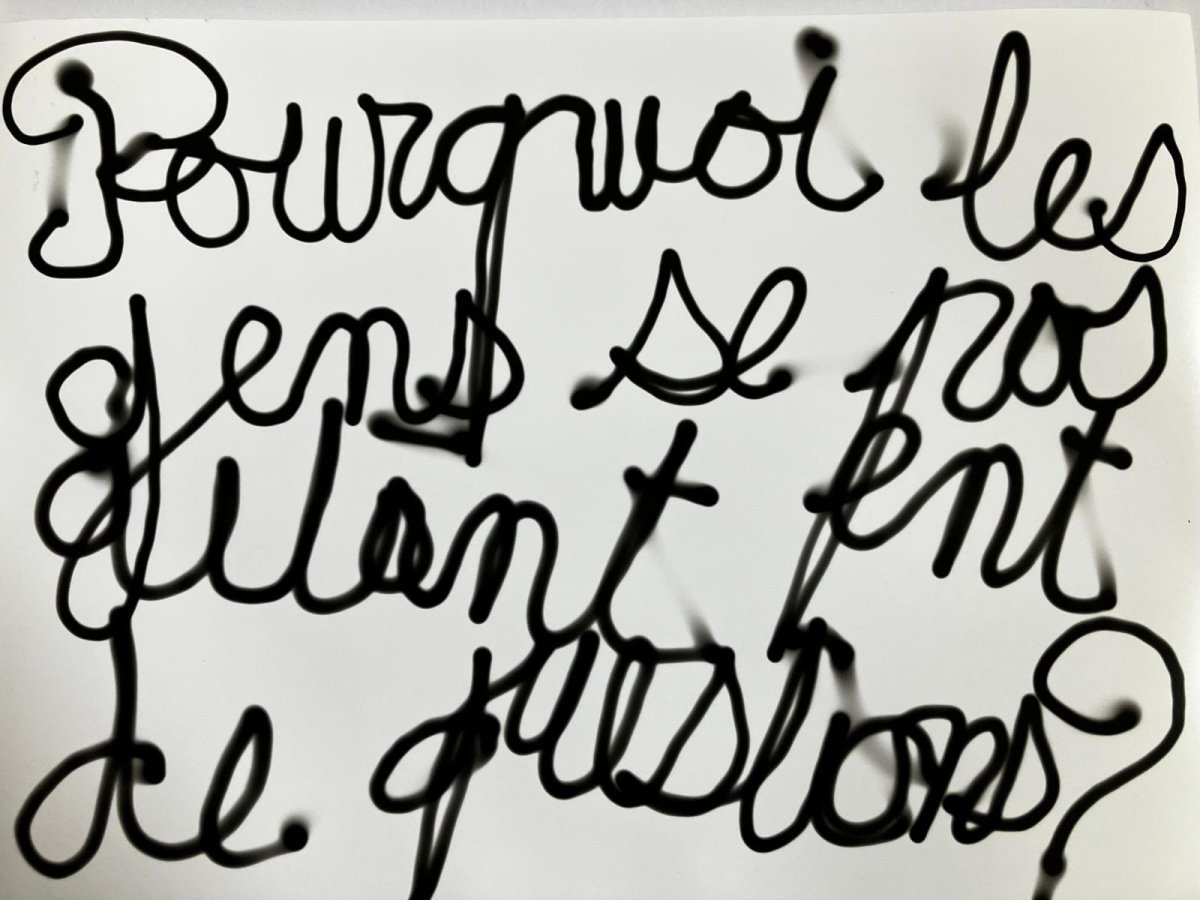 Pourquoi les
gens se pos
autant ent
de questions?